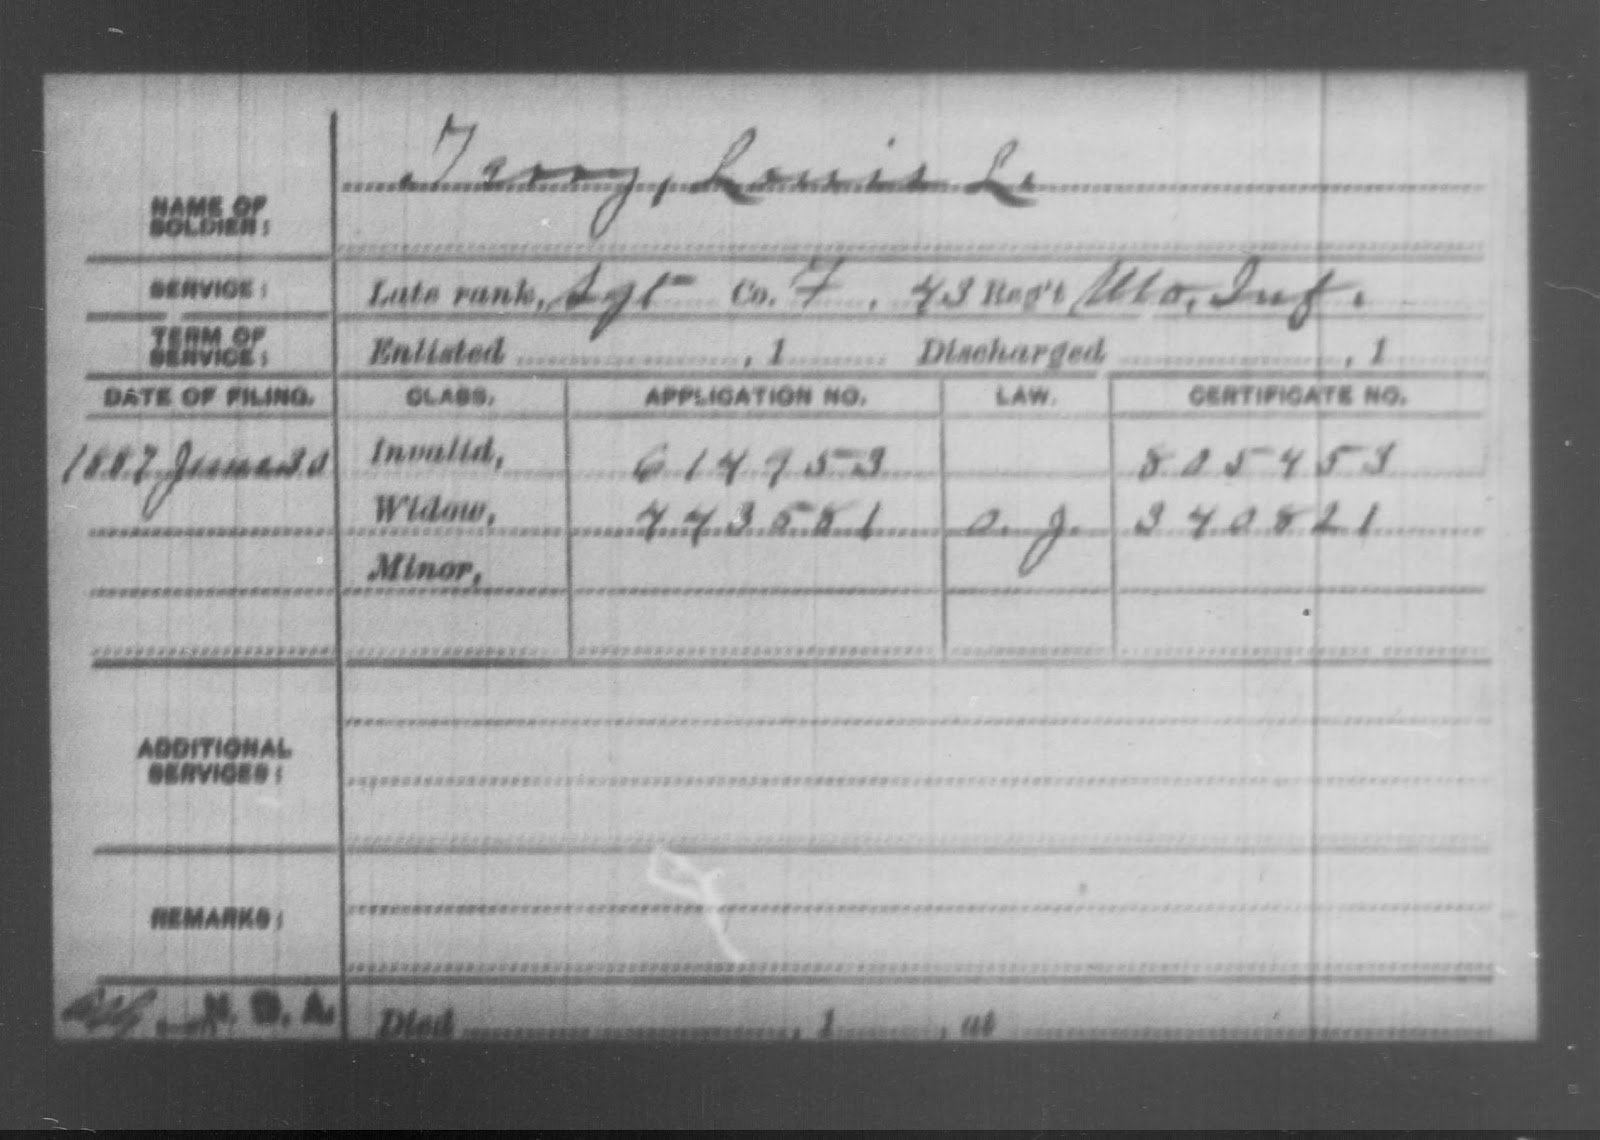 Terry, Louis L.
NAME OF
SOLDIER:
SERVICE: Late rank, Sgt Co. F, 43 Reg't Mo. Inf.
TERM OF
SERVICE: Enlisted , 1 Discharged , 1
DATE OF FILING. CLASS. APPLICATION NO. LAW. CERTIFICATE NO.
1887 June 30 Invalid, 614953 805453
Widow, 443581 O. J. 340821
Minor,
ADDITIONAL
SERVICES:
REMARKS:
N. D. A. Died , 1 , at